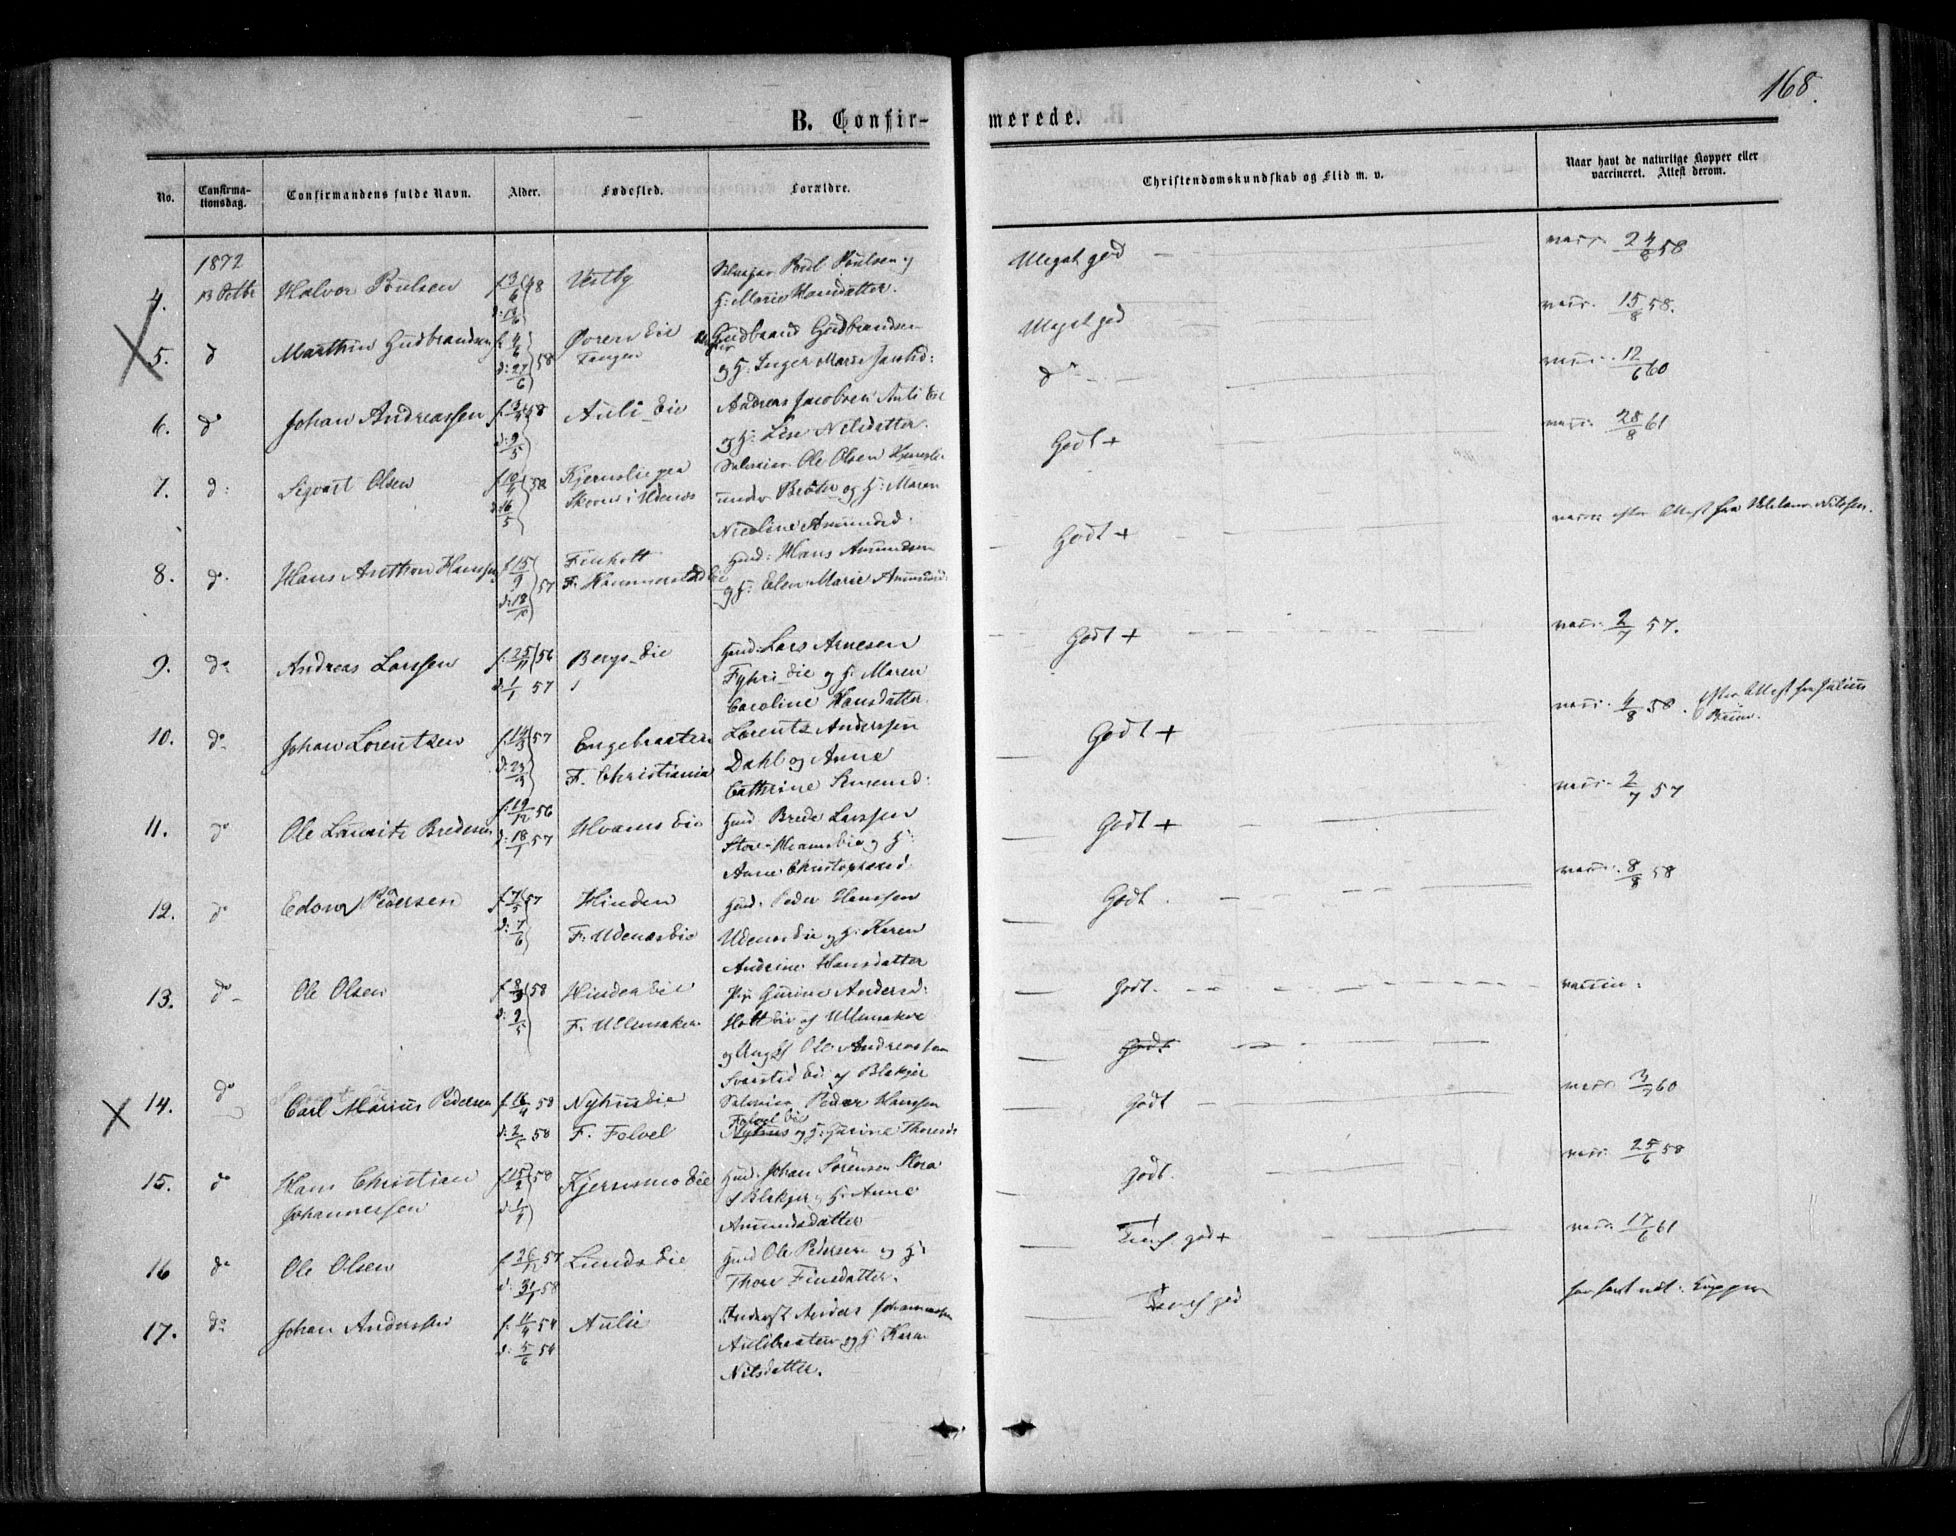 168.
B. Confir-merede.
No.
Confirma-
tionsdag.
Confirmandens fulde Navn.
Alder.
Fødested.
Forældre.
Christendomskundskab og Flid m. v.
Naar havt de naturlige Kopper eller
vaccineret. Attest derom.
1872
4. 13 Octbr Halvor Poulsen Vestby
Poul Poulsen og
H: Marie Hansdatter.
Meget god
vacc. 24/8 58
5. d Marthin Gudbrandsen f. 4/6 d: 27/6 58 Øieren Eie
Tangen
Gudbrand Gudbrandsen
og H: Inger Marie
Meget god
vacc. 15/8 58.
6. do Johan Andreassen Auli Eie
Andreas Jacobsen Auli Eie
og H: Lise Nilsdatter.
do
vacc. 12/6 60
7. d: Sigvart Olsen f. 10/4 d: 16/5 58
Ole Olsen
under og H: Maren
Nicoline Amundsd:
Godt +
vacc. 28/8 61
8. do. Hans Anthon Hansen f. 15/9 d: 18/10 57 Finholt
F. Hammerstad Eie
Gmd: Hans Amundsen
og H: Elen Marie Amunds
Godt +
vacc: efter Attest fra Nilssen.
9. do Andreas Larssen f. 25/11 56
d: 1/1 57
Bergs Eie
Gmd: Lars Arnesen
Fyhri Eie og H: Maren
Caroline Hansdatter.
Godt +
vacc. 2/7 57.
10. do Johan Lorentzen 57 Engebraaten
F. Christiania
Lorentz Anderssen
Dahl og Anne
Cathrine
Godt +
vacc. 4/8 58. efter Attest fra Julius
11. do Ole Lauritz Bredesen f. 19/12 56
d: 18/1 57
Hvams Eie
Gmd: Brede Larssen
Store-Hvams Eie og H:
Anne Christophersd:
Godt +
vacc. 2/7 57
12. do Edvard Pedersen f. 7/5 d: 7/6 57 Hinden
F. Udenæs Eie
Gmd. Peder Hanssen
Udenæs Eie og H: Karen
Andrine Hansdatter
Godt.
vacc. 8/8 58
13. do Ole Olsen 58 Hinden Eie
F. Ullensaker
Pige Gurine Andersd:
Holt Eie af Ullensaker
og Ungk. Ole Andreassen
Svarstad Ei af Blakjer
Godt.
vaccin.
Godt
14. do Carl Marius Pedersen f. 16/4 58
58
Nyhus Eie
F. Felvel
Peder Hanssen
Felvel Eie
Nyhus og H: Gurine Thoresd:
Godt
vacc. 3/7 60
15. do Hans Christian
Johannessen
58 Kjernsmo Eie
Gmd. Johan Sørensen Hora
i Blakjer, H: Anne
Amundsdatter
Godt.
vacc. 25/6 58
16 do Ole Olsen 57
d: 31/1 58
Lunds Eie
Gmd Ole Pedersen og H:
Thore Finsdatter.
Temf. god +
vacc. 17/6 61
17. do Johan Anderssen f. 11/4 54
d: 5/6 54
Aulie
Johannessen
Aulibraaten og H: Karen
Nilsdatter.
Temf god
har havt nat: Kopper